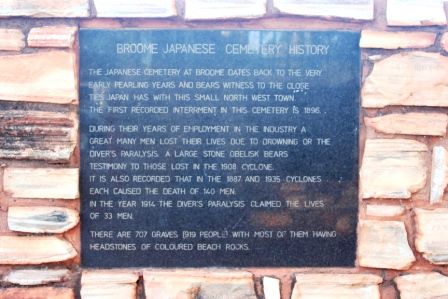 BROOME JAPANESE CEMETERY HISTORY
THE JAPANESE CEMETERY AT BROOME DATES BACK TO THE VERY
EARLY PEARLING YEARS AND BEARS WITNESS TO THE CLOSE
TIES JAPAN HAS WITH THIS SMALL NORTH WEST TOWN.
THE FIRST RECORDED INTERRMENT IN THIS CEMETERY IS 1896.
DURING THEIR YEARS OF EMPLOYMENT IN THE INDUSTRY A
GREAT MANY MEN LOST THEIR LIVES DUE TO DROWNING OR THE
DIVER'S PARALYSIS. A LARGE STONE OBELISK BEARS
TESTIMONY TO THOSE LOST IN THE 1908 CYCLONE.
IT IS ALSO RECORDED THAT IN THE 1887 AND 1935 CYCLONES
EACH CAUSED THE DEATH OF 140 MEN.
IN THE YEAR 1914 THE DIVER'S PARALYSIS CLAIMED THE LIVES
OF 33 MEN.
THERE ARE 707 GRAVES (919 PEOPLE) WITH MOST OF THEM HAVING
HEADSTONES OF COLOURED BEACH ROCKS.